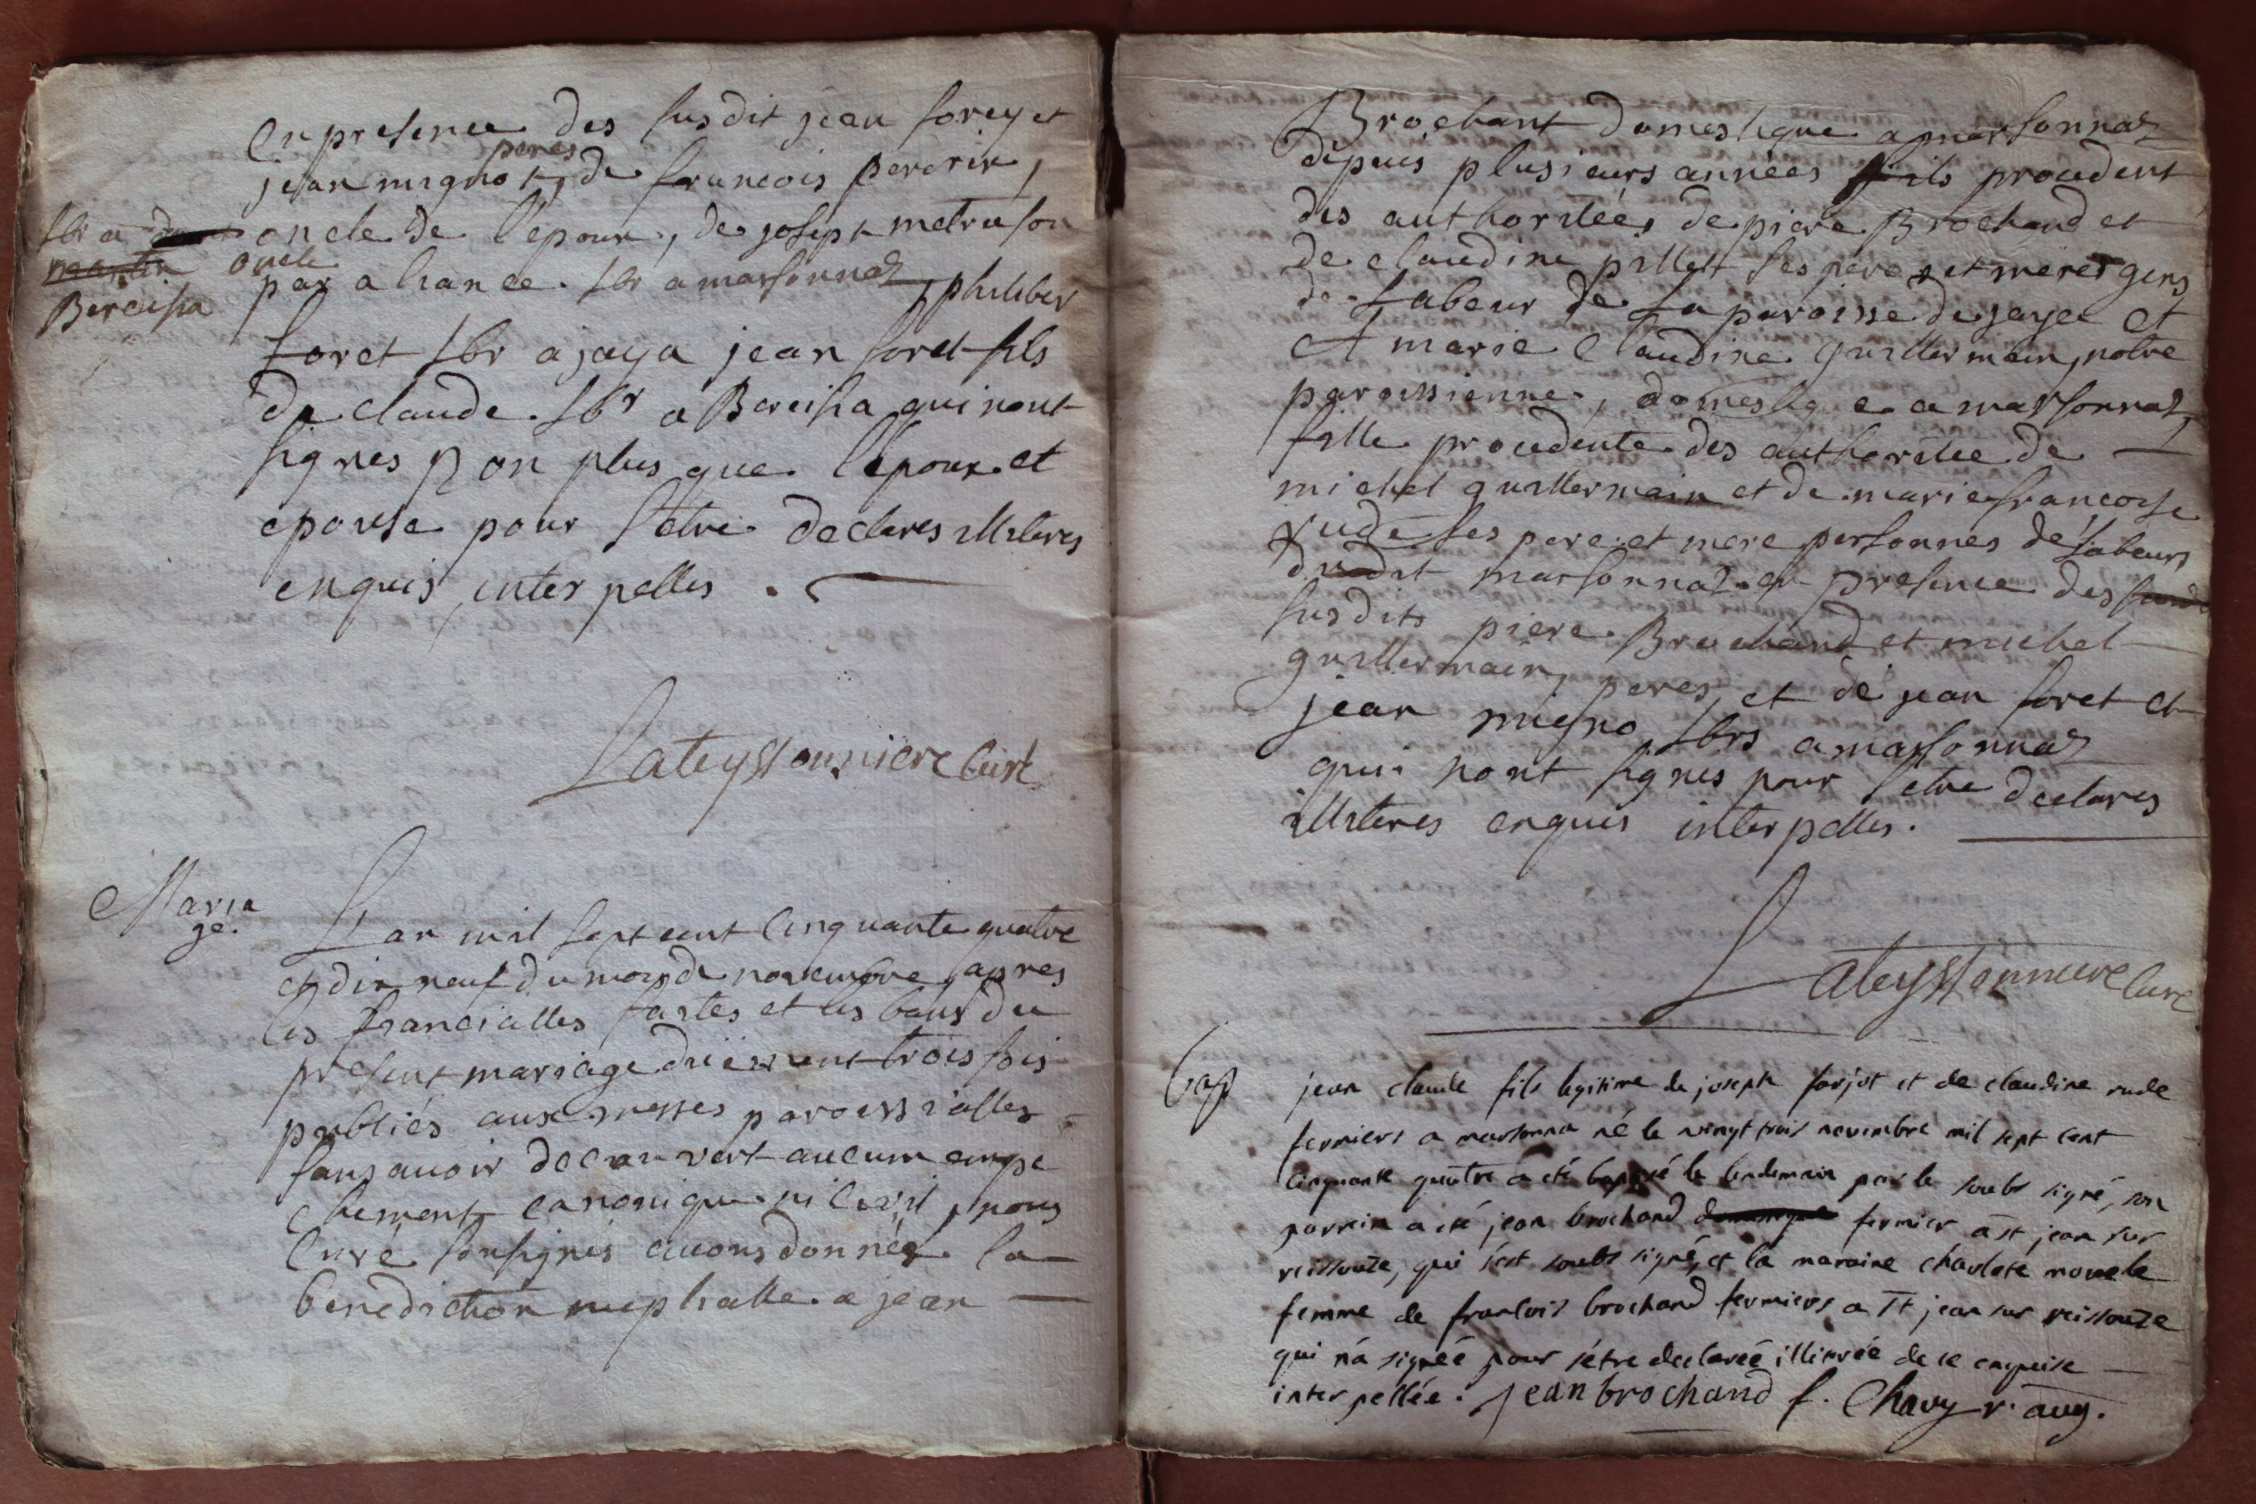 En presence des susdit jean forey et
jean mignot, peres de francois Percrin,
oncle de l'epoux, de joseph metra son
oncle
par aliance. lbr a marsonnaz, philiber
lbr a
Bereisia
foret lbr a jaya jean foret fils
de claude. lbr a Bereisia qui nont
signes Non plus que l'epoux et
epouse pour s'etre declares illiteres
enquis, interpelles.
Lateyssonniere Curé
Maria
ge.
L'an mil sept cent cinquante quatre
et dix neuf du mois de novembre, apres
les fiancialles faites et les bans du
present mariage düement trois fois
publiés aux messes paroissialles
sans avoir decouvert aucum empe
chement canonique ni Civil, nous
Curé sousignés avons donnéé la
benediction nuptialle a jean
Brochant domestique a marsonnaz
depuis plusieurs années fils procedent
des authoritées de piere Brochand et
de claudine pillett ses peres et meres gens
de Labeur de La paroisse de jayet Et
A marie Claudine guillermain, notre
paroissienne, domestique a marsonnaz,
fille procedente des authoritee de
michel guillermain et de marie francoise
rude ses pere et mere personnes de labeurs
dudit marsonnaz en presence des
susdits piere Brochand et michel
guillermain, peres, et de jean foret et
jean migno, lbrs a marsonnaz
qui nont signes pour s'etre declares
illiteres enquis interpelles.
Lateyssonniere Curé
bap
jean claude fils legitime de joseph forjot et de claudine rude
fermiers a marsonna né le vingt trois novembre mil sept cent
cinquante quatre a eté baptisé le lendemain par le soubs signé, son
parrein a eté jean brochand fermier a st jean sur
reissouze, qui s'est soubs signé, et la maraine charlote novele
femme de francois brochand fermiers a st jean sur reissouze
qui n'a signéé pour s'étre declareé illiterée de ce enquise
interpellée. jean brochand f. Chavy r. aug.